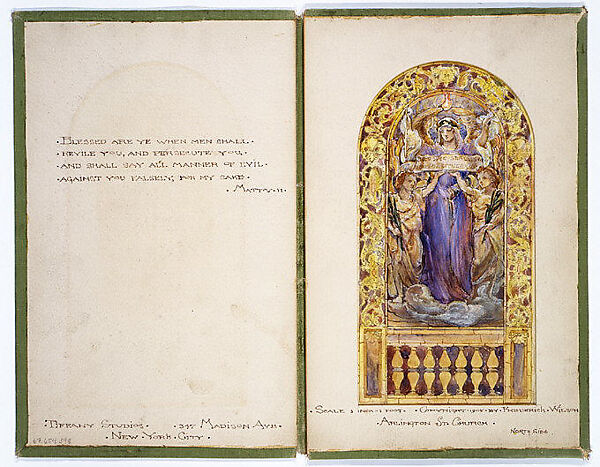 · Blessed are ye when men shall ·
· revile you, and persecute you, ·
· and shall say all manner of evil ·
· against you falsely, for my sake ·
Tiffany Studios · 345 Madison Ave ·
· New York City ·
· Scale 1 inch = 1 foot · Copyright by Frederick Wilson
· Arlington St. Church ·
North Side